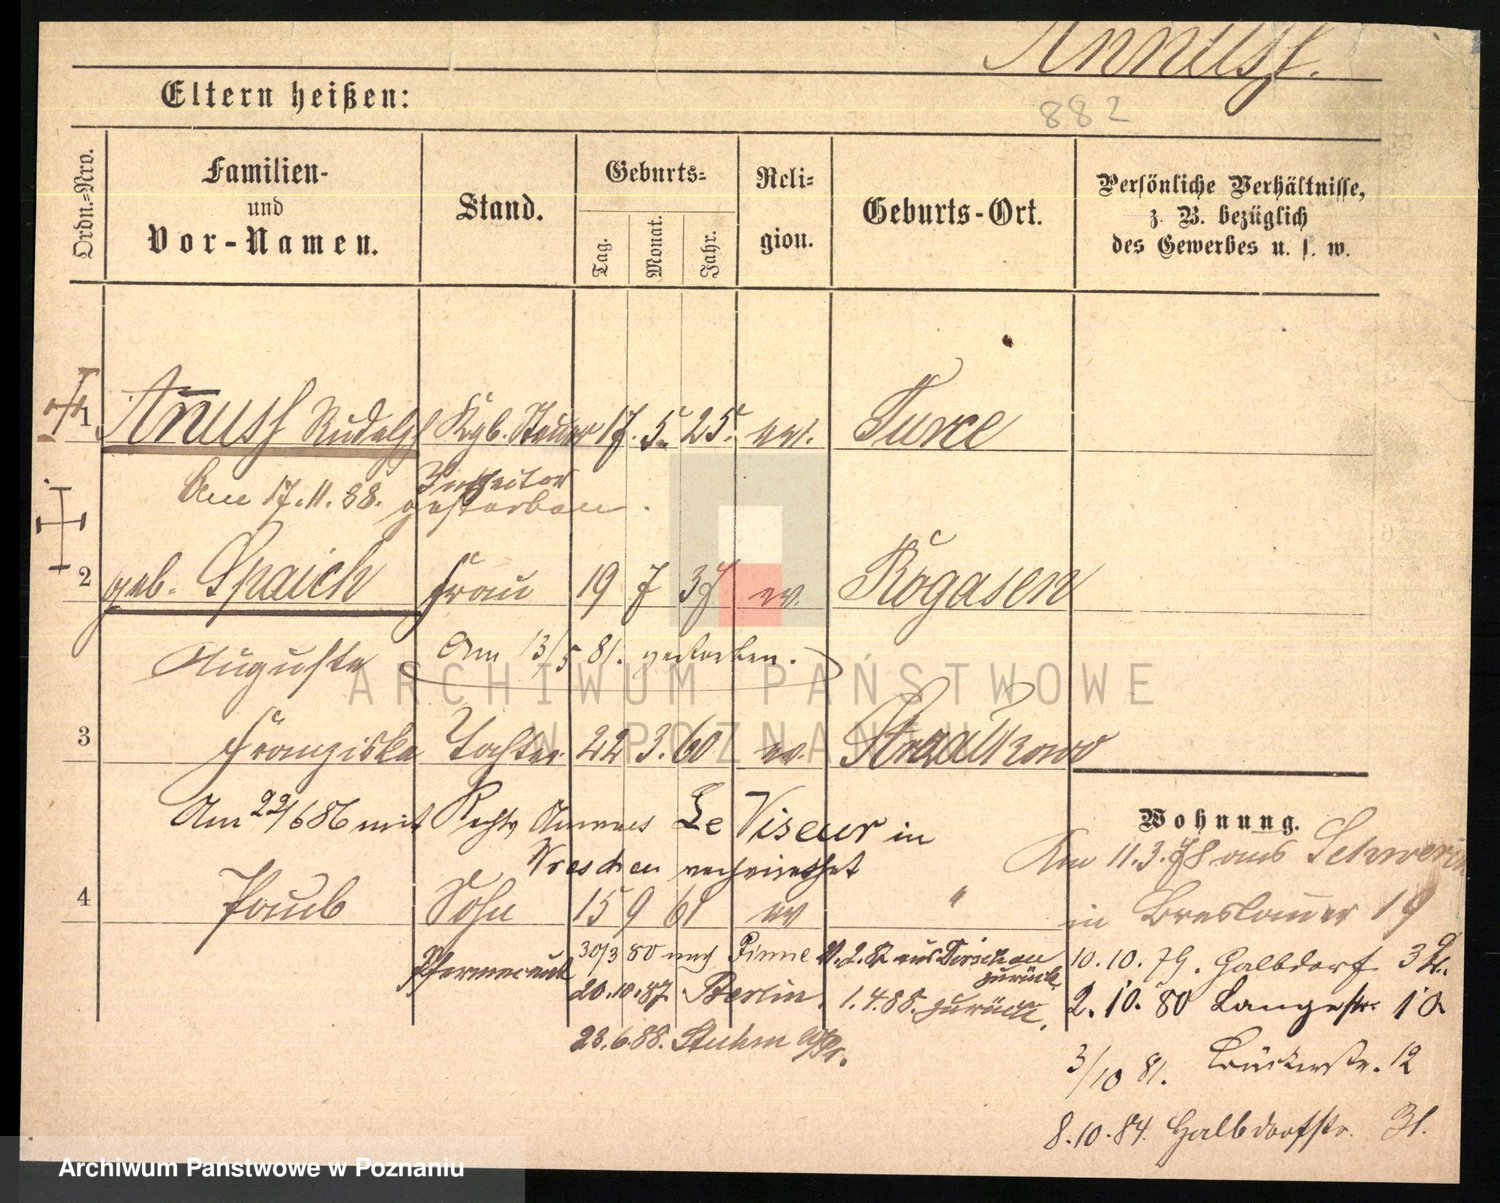 Annusf.
882
Eltern heißen:
Ordn.=Nro.
Familien-
und
Vor-Namen.
Stand.
Geburts=
Tag.
Monat.
Jahr.
Reli=
gion.
Geburts-Ort.
Persönliche Verhältnisse,
z. B. bezüglich
des Gewerbes u. s. w.
1 Rudolph Kgl. Steuer 17. 5. 25. ev.
Am 17.11.88. gestorben.
2 geb. Spaich Frau 19 7 37 ev. Rogasen
Auguste Am 13/5 81. gestorben.
ARCHIWUM PAŃSTWOWE
W POZNANIU
3 Franziska Tochter 22 3. 60 ev.
Am 22/6 86 mit Rechts Le Viseur in
Wreschen verheirathet
Wohnung.
Am 11.3.78 aus Schwerin
4 Paul Sohn 15 9 61 ev "
in Breslauer 19
30/3 80 nach Pinne 2.82 aus Dirschau
zurück
10.10.79. Halbdorf
20.10.87. Berlin. 1.4.88. zurück.
2.10.80 Langestr. 10
23.6.88. Stuhm
3/10 81. 12
8.10.84. Halbdorfstr. 31.
Archiwum Państwowe w Poznaniu